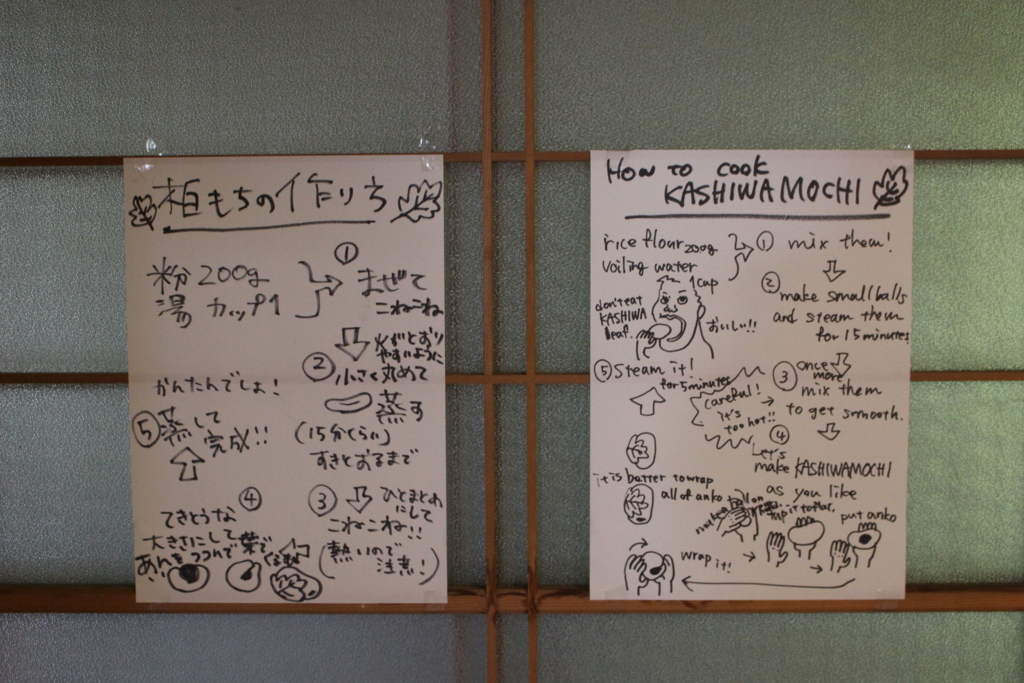 柏もちの作り方
粉 200g
湯 カップ1
①
まぜて
こねこね
火がとおり
やすいように
②
小さく丸めて
蒸す
(15分くらい)
すきとおるまで
③
ひとまとめ
にして
こねこね!!
(熱いので
注意!)
④
てきとうな
大きさにして
あんをつつんで葉で
くるむ
⑤ 蒸して
完成!!
かんたんでしょ!
HOW TO COOK
KASHIWAMOCHI
rice flour 200g
voiling water
1cup
① mix them!
② make small balls
and steam them
for 15 minutes
③ once
more
mix them
to get smooth.
careful!
it's
too hot!!
④
Let's
make KASHIWAMOCHI
as you like
put anko
wrap it!
it is better to wrap
all of anko
⑤ Steam it!
for 5 minutes
don't eat
KASHIWA
leaf.
おいしい!!